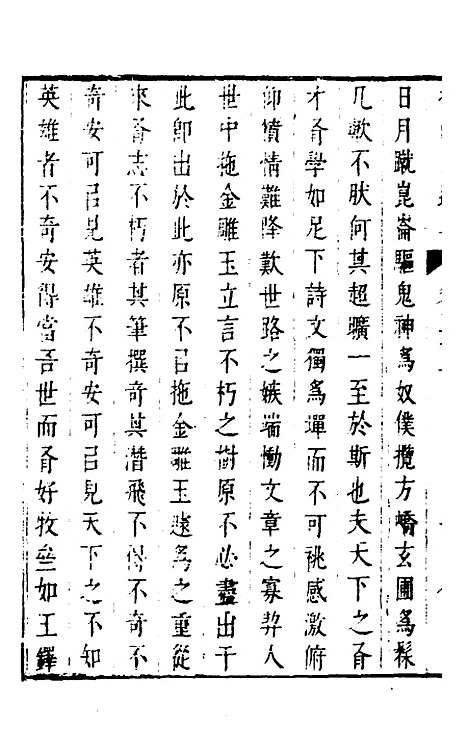 日月蹴崑崙驅鬼神爲奴僕攬方嶠玄圃爲髹
几歟不肰何其超曠一至於斯也夫天下之㚊
才㚊學如足下詩文獨爲墠而不可祧感激俯
仰憤情難降歎世路之嫉端慟文章之寡契人
世中拖金雕玉立言不朽之尌原不必盡出于
此卽出於此亦原不㠯拖金雕玉遂爲之重從
來㚊志不朽者其筆撰奇其潛飛不傳不奇不
奇安可㠯見英雄不奇安可㠯見天下之不知
英雄者不奇安得當吾世而㚊好牧壘如王鐸